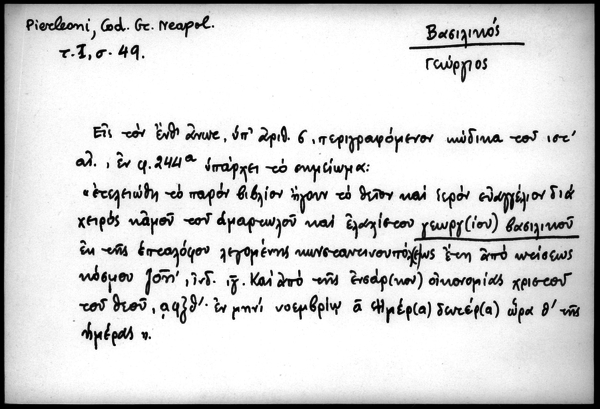 Pierleoni, Cod. Gr. Neapol.
τ. I, σ. 49.
Βασιλικός
Γεώργιος
Εἰς τὸν ἔνθ' ἄνωτ., ὑπ' ἀριθ. 6, περιγραφόμενον κώδικα τοῦ ιστ'
αἰ., ἐν φ. 244α ὑπάρχει τὸ σημείωμα:
«ἐτελειώθη τὸ παρὸν βιβλίον ἤγουν τὸ θεῖον καὶ ἱερὸν εὐαγγέλιον διὰ
χειρὸς κἀμοῦ τοῦ ἁμαρτωλοῦ καὶ ἐλαχίστου γεωργ(ίου) βασιλικοῦ
ἐκ τῆς ἑπταλόφου λεγομένης κωνσταντινουπόλεως ἔτη ἀπὸ κτίσεως
κόσμου ͵ζοη', ἰνδ. ιγ. Καὶ ἀπὸ τῆς ἐνσάρ(κου) οἰκονομίας χριστοῦ
τοῦ θεοῦ, ͵αφξθ' ἐν μηνὶ νοεμβρίῳ α Ἡμέρ(α) δευτέρ(α) ὥρα θ' τῆς
ἡμέρας».